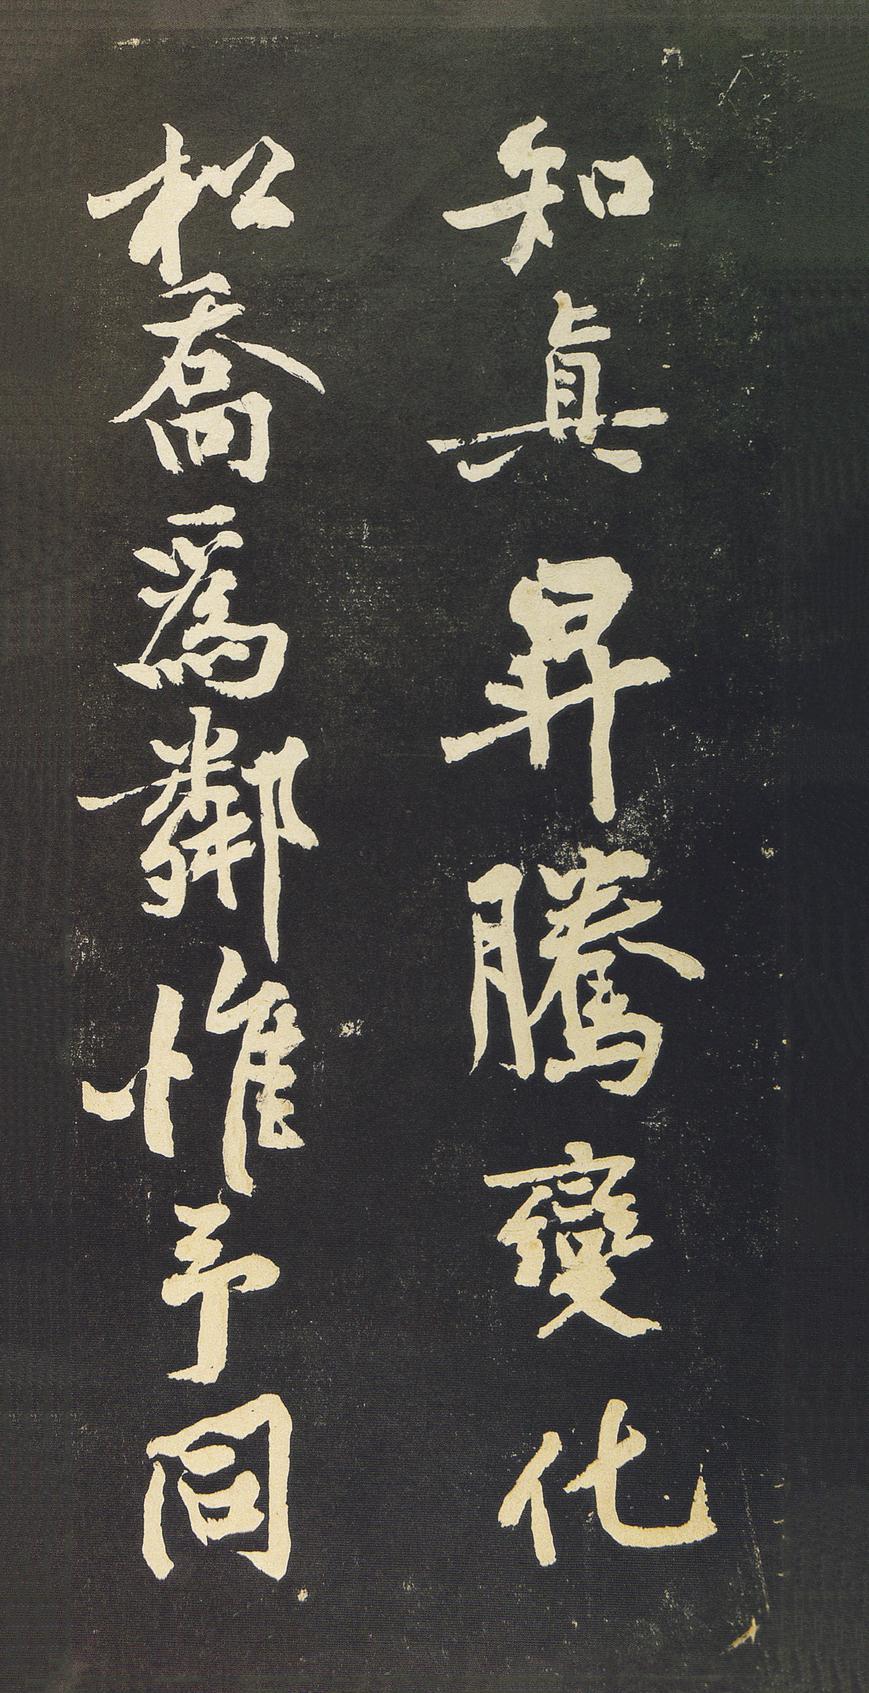 知真昇騰變化
松喬爲鄰惟予同